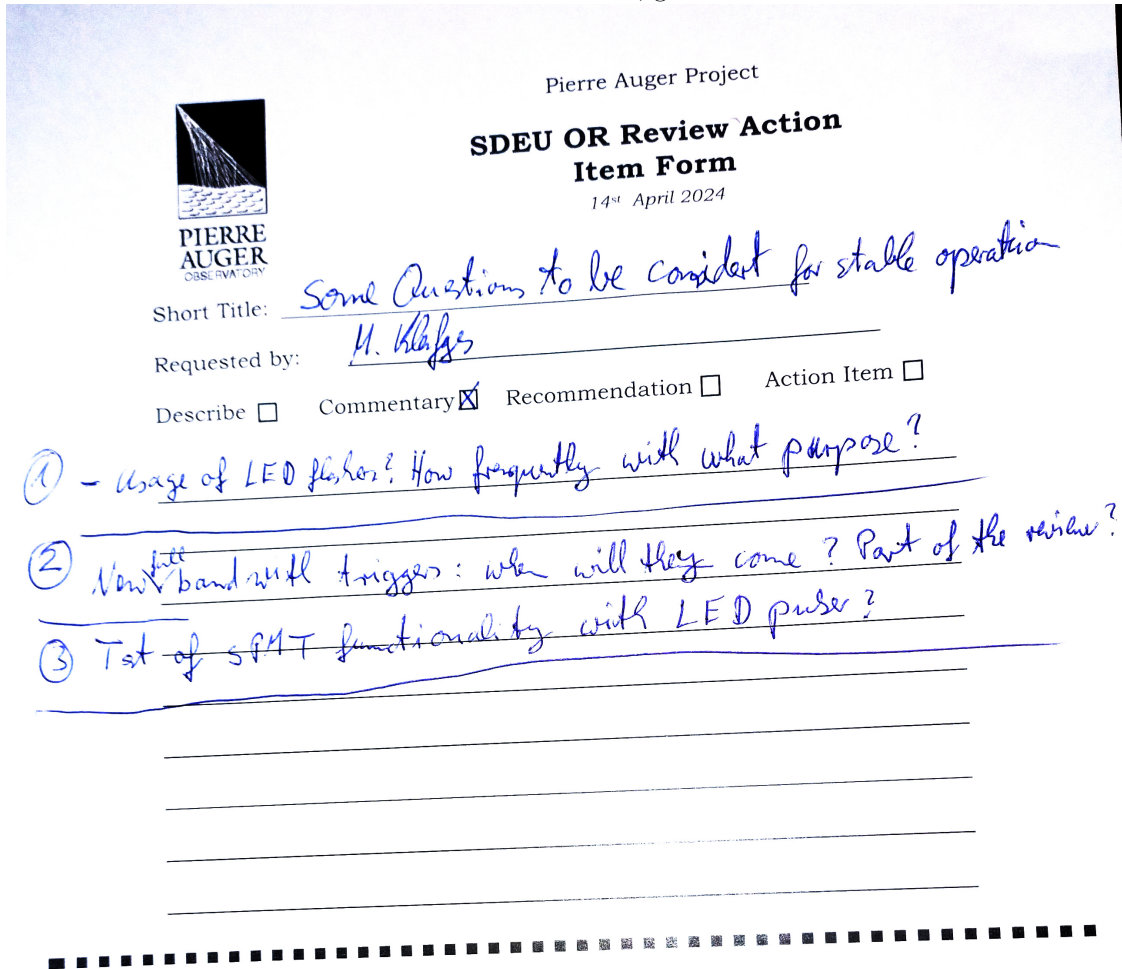 Pierre Auger Project
SDEU OR Review Action
Item Form
14st April 2024
PIERRE
AUGER
OBSERVATORY
Short Title: Some Questions to be considert for stable operation
Requested by: M. Kleifges
Describe ☐ Commentary ☒ Recommendation ☐ Action Item ☐
① - Usage of LED flasher? How frequently with what purpose?
② New full bandwith triggers: when will they come? Part of the review?
③ Test of sPMT functionality with LED pulser?